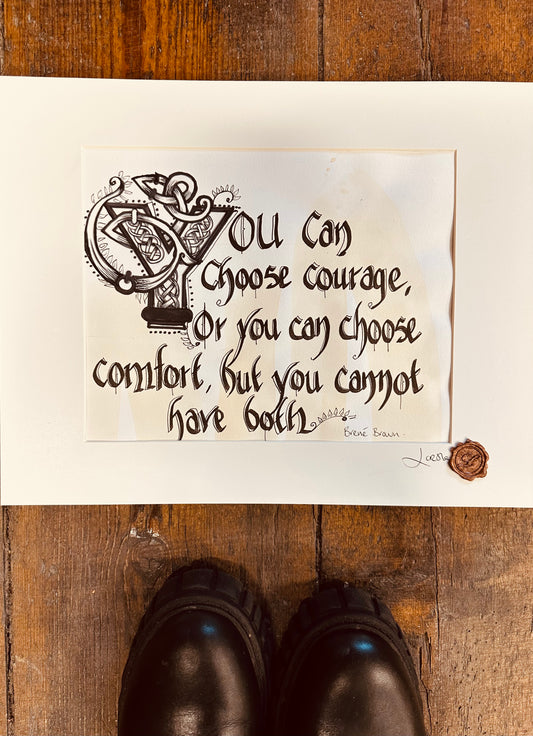 YOU Can
Choose courage,
Or you can choose
comfort, but you cannot
have both
Brené Brown.